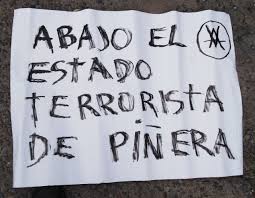 ABAJO EL
ESTADO
TERRORISTA
DE PIÑERA